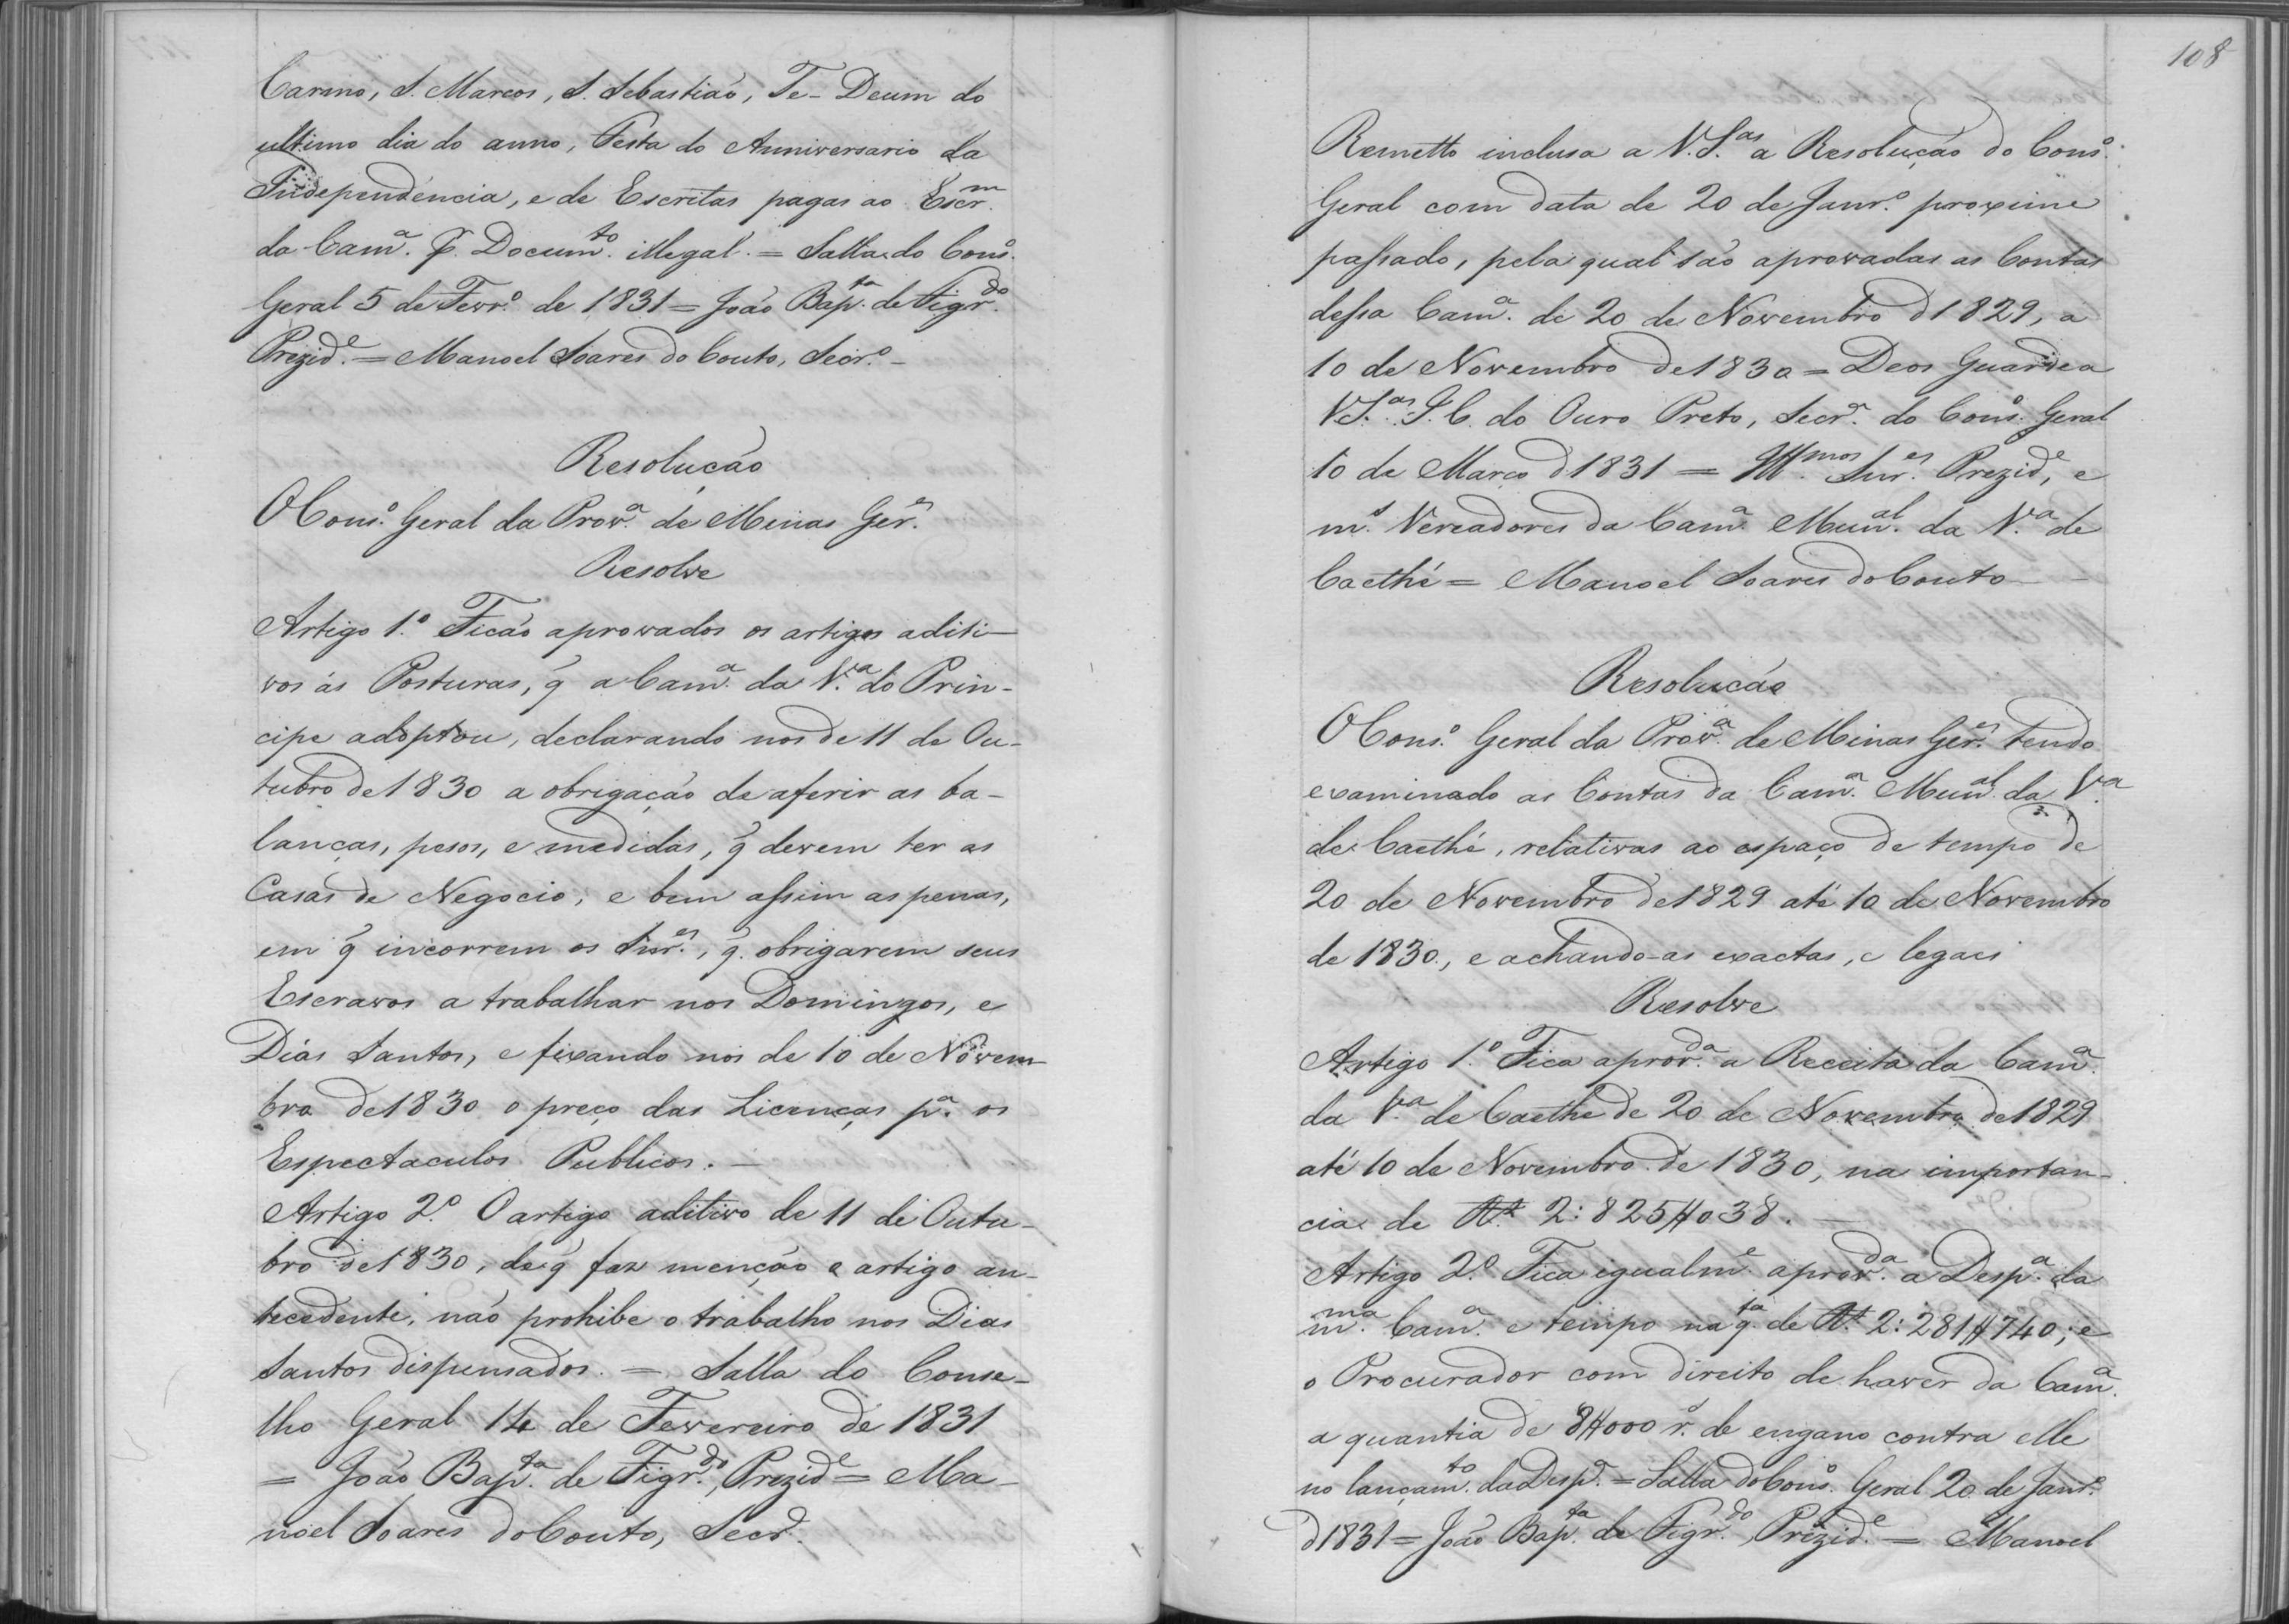 Carmo, S. Marcos, S. Sebastiaõ, Te-Deum do
ultimo dia do anno, Festa do Anniversario da
Independencia, e de Escritas pagas ao Escr.m
da Cam.ª p. Docum.to illegal. = Salla do Cons.º
Geral 5 de Fevr.º de 1831 = Joaõ Bap.ta de Figr.do
Prezid.e = Manoel Soares do Couto, Secr.º -
Resoluçaõ
O Cons.º Geral da Prov.ª de Minas Ger.s
Resolve
Artigo 1.º Ficaõ aprovados os artigos aditi-
vos ás Posturas, q̃ a Cam.ª da V.ª do Prin-
cipe adoptou, declarando nos de 11 de Ou-
tubro de 1830 a obrigaçaõ de aferir as ba-
lanças, pesos, e medidas, q̃ devem ter as
Casas de Negocio, e bem assim as penas,
em q̃ incorrem os Snr.es, q̃. obrigarem seus
Escravos a trabalhar nos Domingos, e
Dias Santos, e fixando nos de 10 de Novem-
bro de 1830 o preço das Licenças p.ª os
Espectaculos Publicos. -
Artigo 2.º O artigo aditivo de 11 de Outu-
bro de 1830, de q̃ faz mençaõ o artigo an-
tecedente, naõ prohibe o trabalho nos Dias
Santos dispensados. = Salla do Conse-
lho Geral 14 de Fevereiro de 1831
= Joaõ Bap.ta de Figr.do, Prezid.e = Ma-
noel Soares do Couto, Secr.º
108
Remetto inclusa a V.S.as a Resoluçaõ do Cons.º
Geral com data de 20 de Janr.º proximo
passado, pela qual saõ aprovadas as Contas
dessa Cam.ª de 20 de Novembro d 1829, a
10 de Novembro de 1830 = Deos Guarde a
V.S.as I. C. do Ouro Preto, Secr.ª do Cons.º Geral
10 de Março d 1831 = Ill.mos Snr.es Prezid.e, e
m.s Vereadores da Cam.ª Mun.al da V.ª de
Caethé = Manoel Soares do Couto -
Resoluçaõ
O Cons.º Geral da Prov.ª de Minas Ger.s tendo
examinado as Contas da Cam.ª Mun.al da V.ª
de Caethé, relativas ao espaço de tempo de
20 de Novembro de 1829 até 10 de Novembro
de 1830, e achando-as exactas, e legaes
Resolve
Artigo 1.º Fica aprov.da a Receita da Cam.ª
da V.ª de Caethe de 20 de Novembro de 1829
até 10 de Novembro de 1830, na importan-
cia de R.s 2:825$038. -
Artigo 2.º Fica igualm.e aprov.da a Desp.ª da
m.ma Cam.ª e tempo na q.ta de R.s 2:281$740; e
o Procurador com direito de haver da Cam.ª
a quantia de 8$000 r.s de engano contra elle
no lançam.to da Desp.ª = Salla do Cons.º Geral 20 de Janr.º
d 1831 = Joaõ Bap.ta de Figr.do, Prezid.e = Manoel